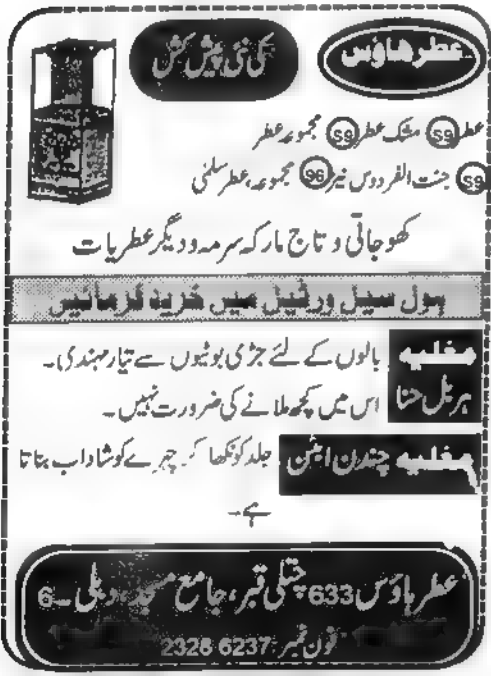 عطر ہاؤس کی نئی پیش کش
عطر S9 مشک عطر S9 مجموعہ عطر
S9 جنت الفردوس نیز 96 مجموعہ، عطر سلمٰی
کھوجاتی و تاج مارکہ سرمہ و دیگر عطریات
ہول سیل ورٹیل میں خرید فرمائیں
مغلیہ ہربل حنا
بالوں کے لئے جڑی بوٹیوں سے تیار مہندی۔
اس میں کچھ ملانے کی ضرورت نہیں۔
مغلیہ چندن ابٹن جلد کو نکھا کر چہرے کو شاداب بناتا
ہے۔
عطر ہاؤس 633 چتلی قبر، جامع مسجد، دہلی ۔6
فون نمبر: 2328 6237